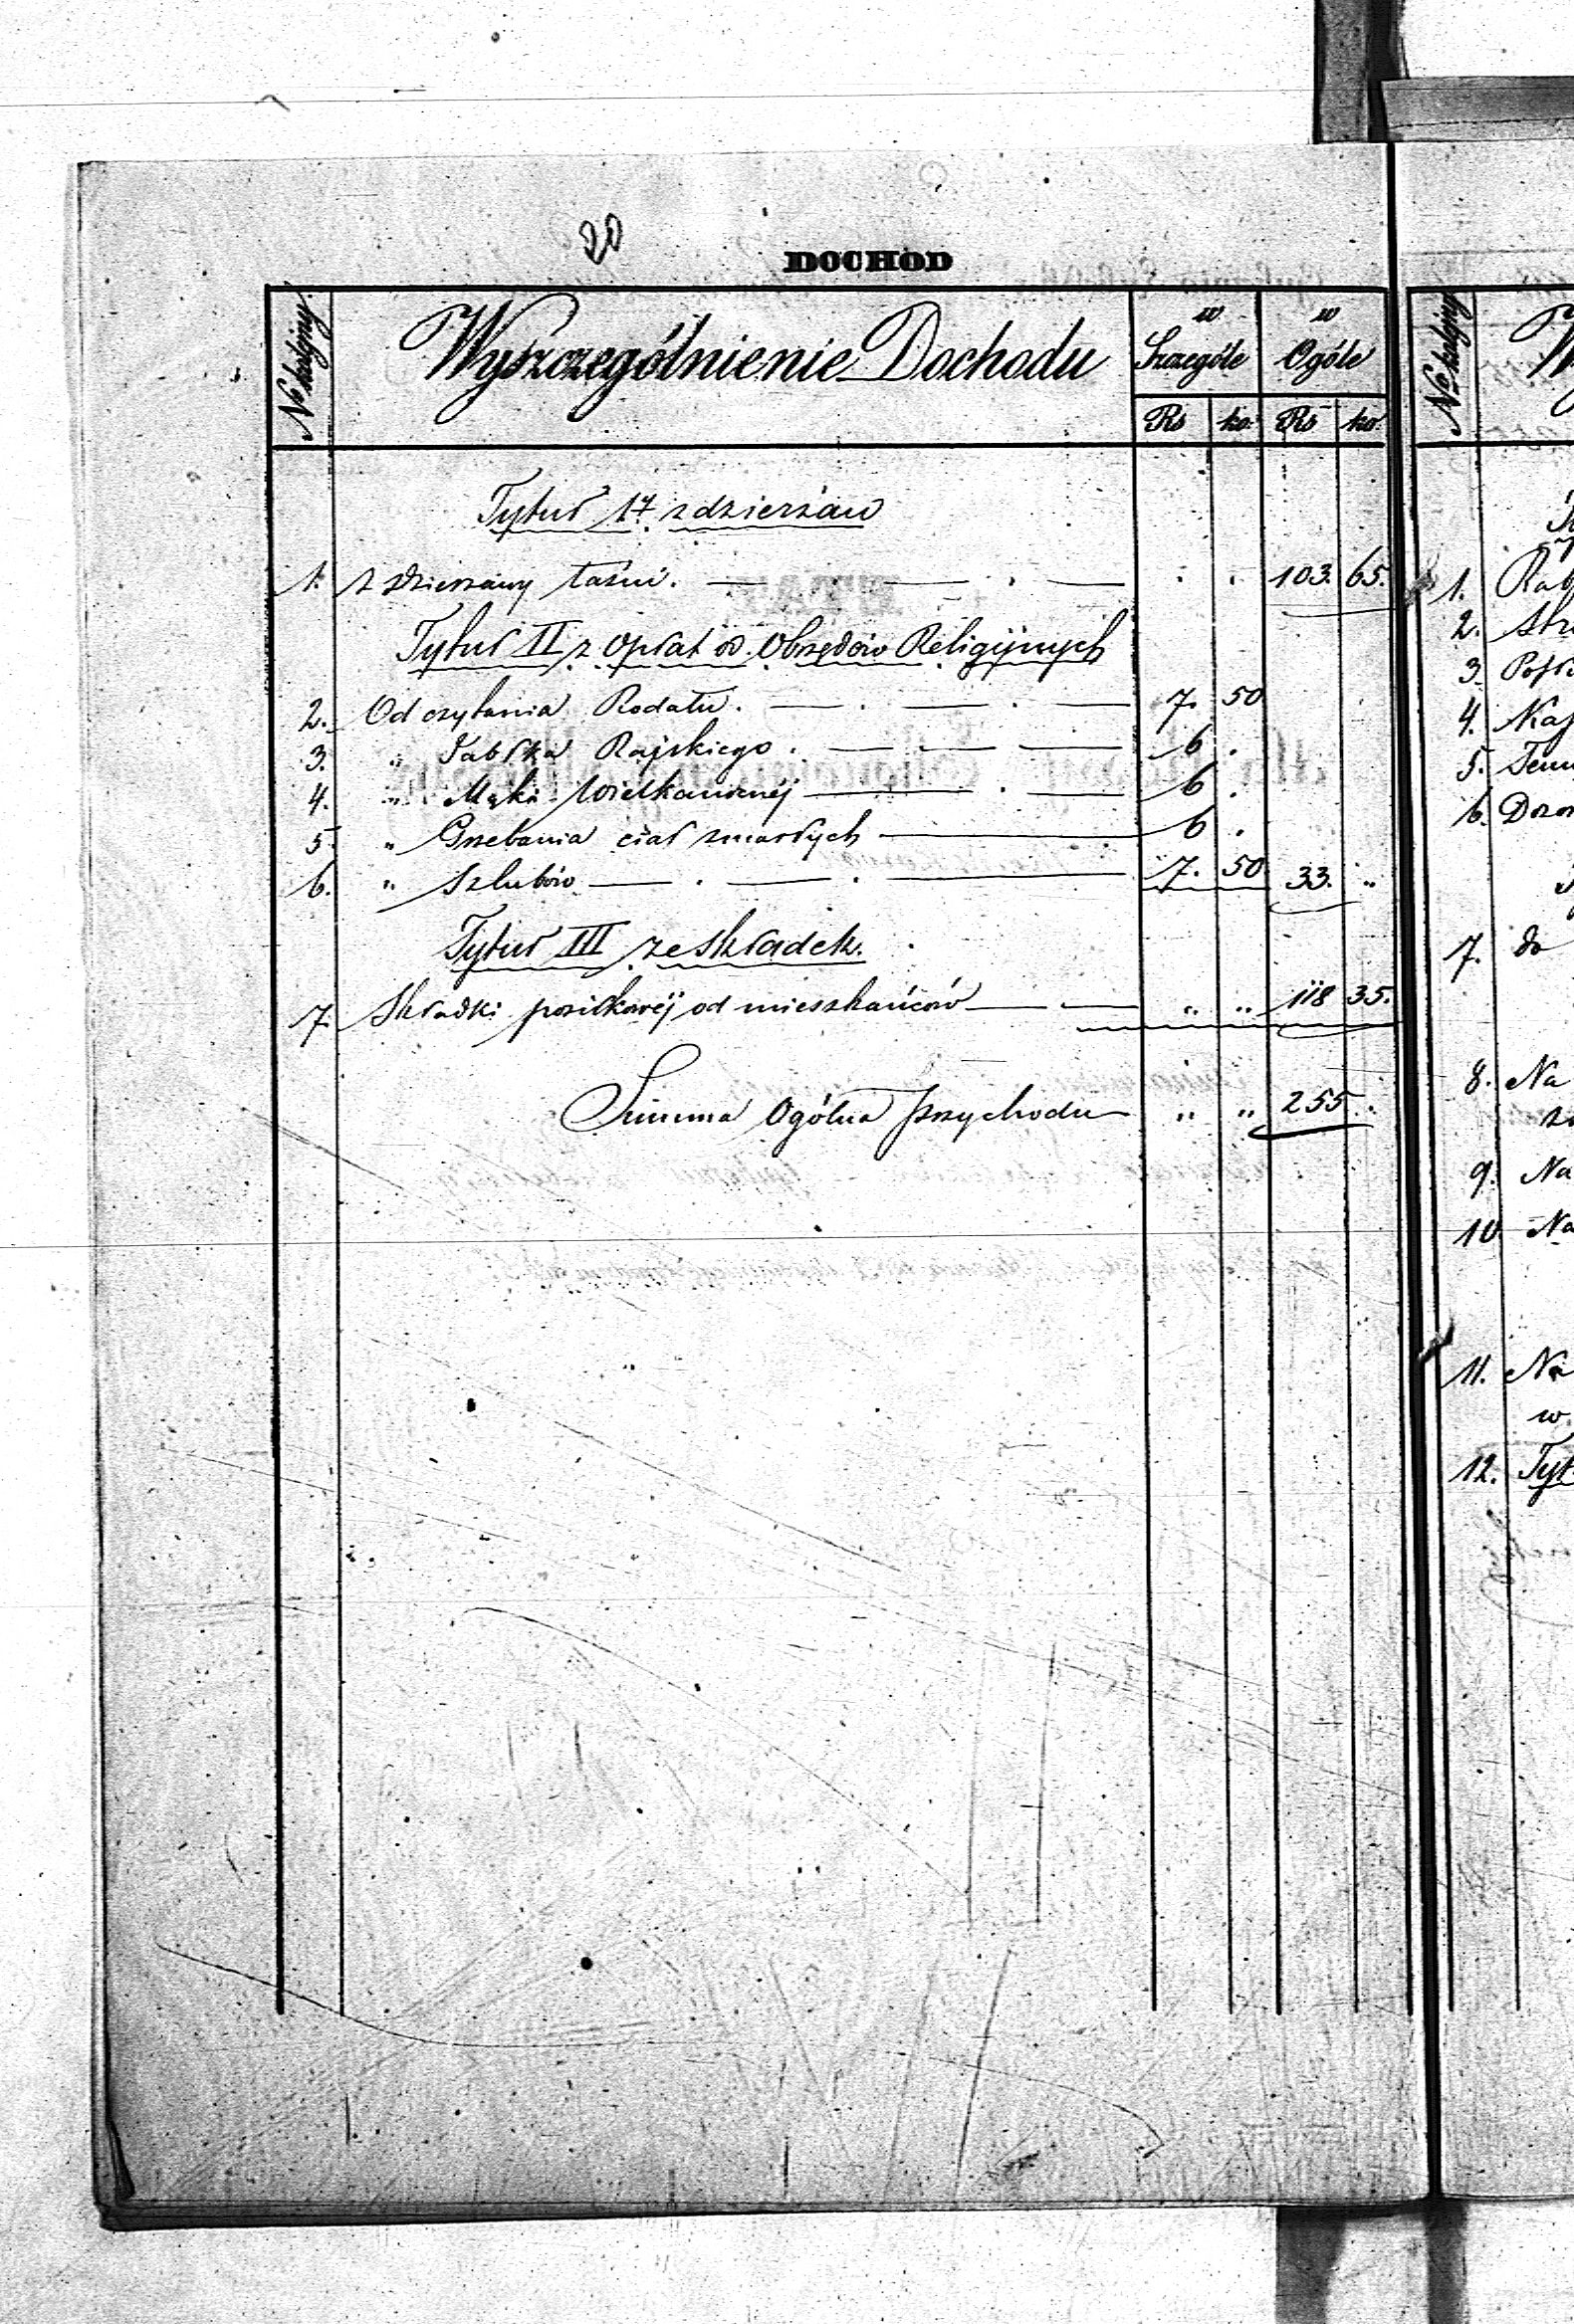 20
DOCHÓD
No kolejny. Wyszczególnienie Dochodu w Szczególe w Ogóle
Rs ko. Rs ko.
Tytuł 1y z dzierżaw
1. Z dzierżawy łaźni. 103. 65.
Tytuł II z Opłat od Obrzędów Religijnych
2. Od czytania Rodału. 7. 50
3. " Jabłka Rajskiego. 6 .
4. " Mąki Wielkanocnej 6 .
5. " Grzebania ciał zmarłych 6 .
6. " Szlubów 7. 50 33. "
Tytuł III ze składek.
7. Składki posiłkowéj od mieszkańców " " 118 35.
Summa Ogólna przychodu " " 255 "
No kolejny
1.
2.
3.
4.
5.
6.
7. do
8. Na
9. Na
10 Na
11. Na
w
12. Tyt